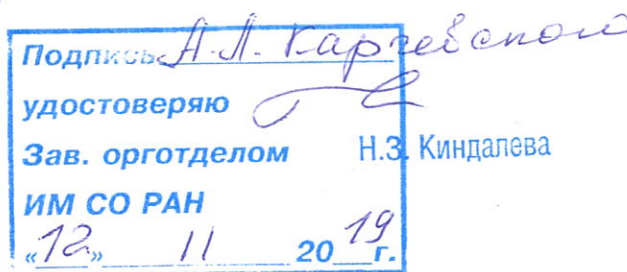 Подпись А.Л. Карчевского
удостоверяю
Зав. орготделом Н.З. Киндалева
ИМ СО РАН
«12» 11 2019 г.